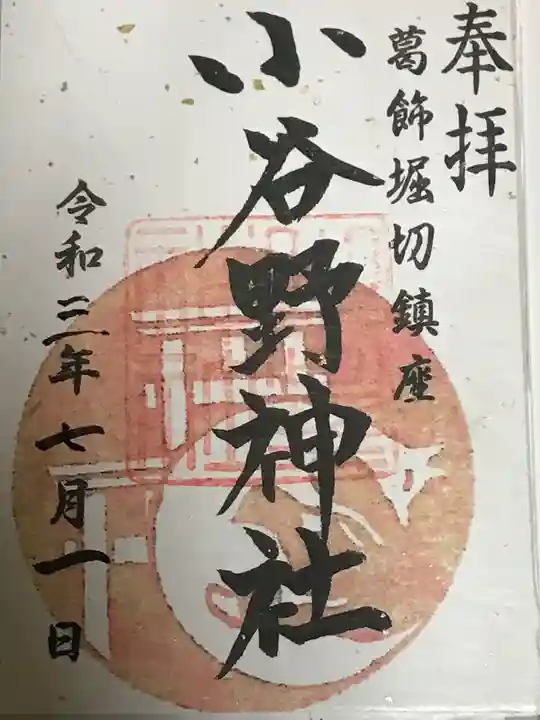 奉拝
葛飾堀切鎮座
小谷野神社
令和二年七月一日